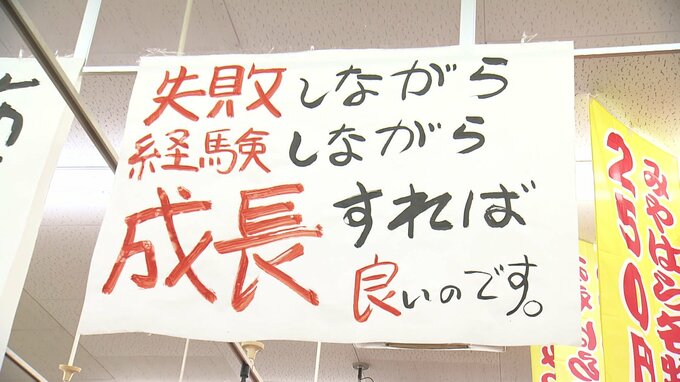 失敗しながら
経験しながら
成長すれば
良いのです。
250円